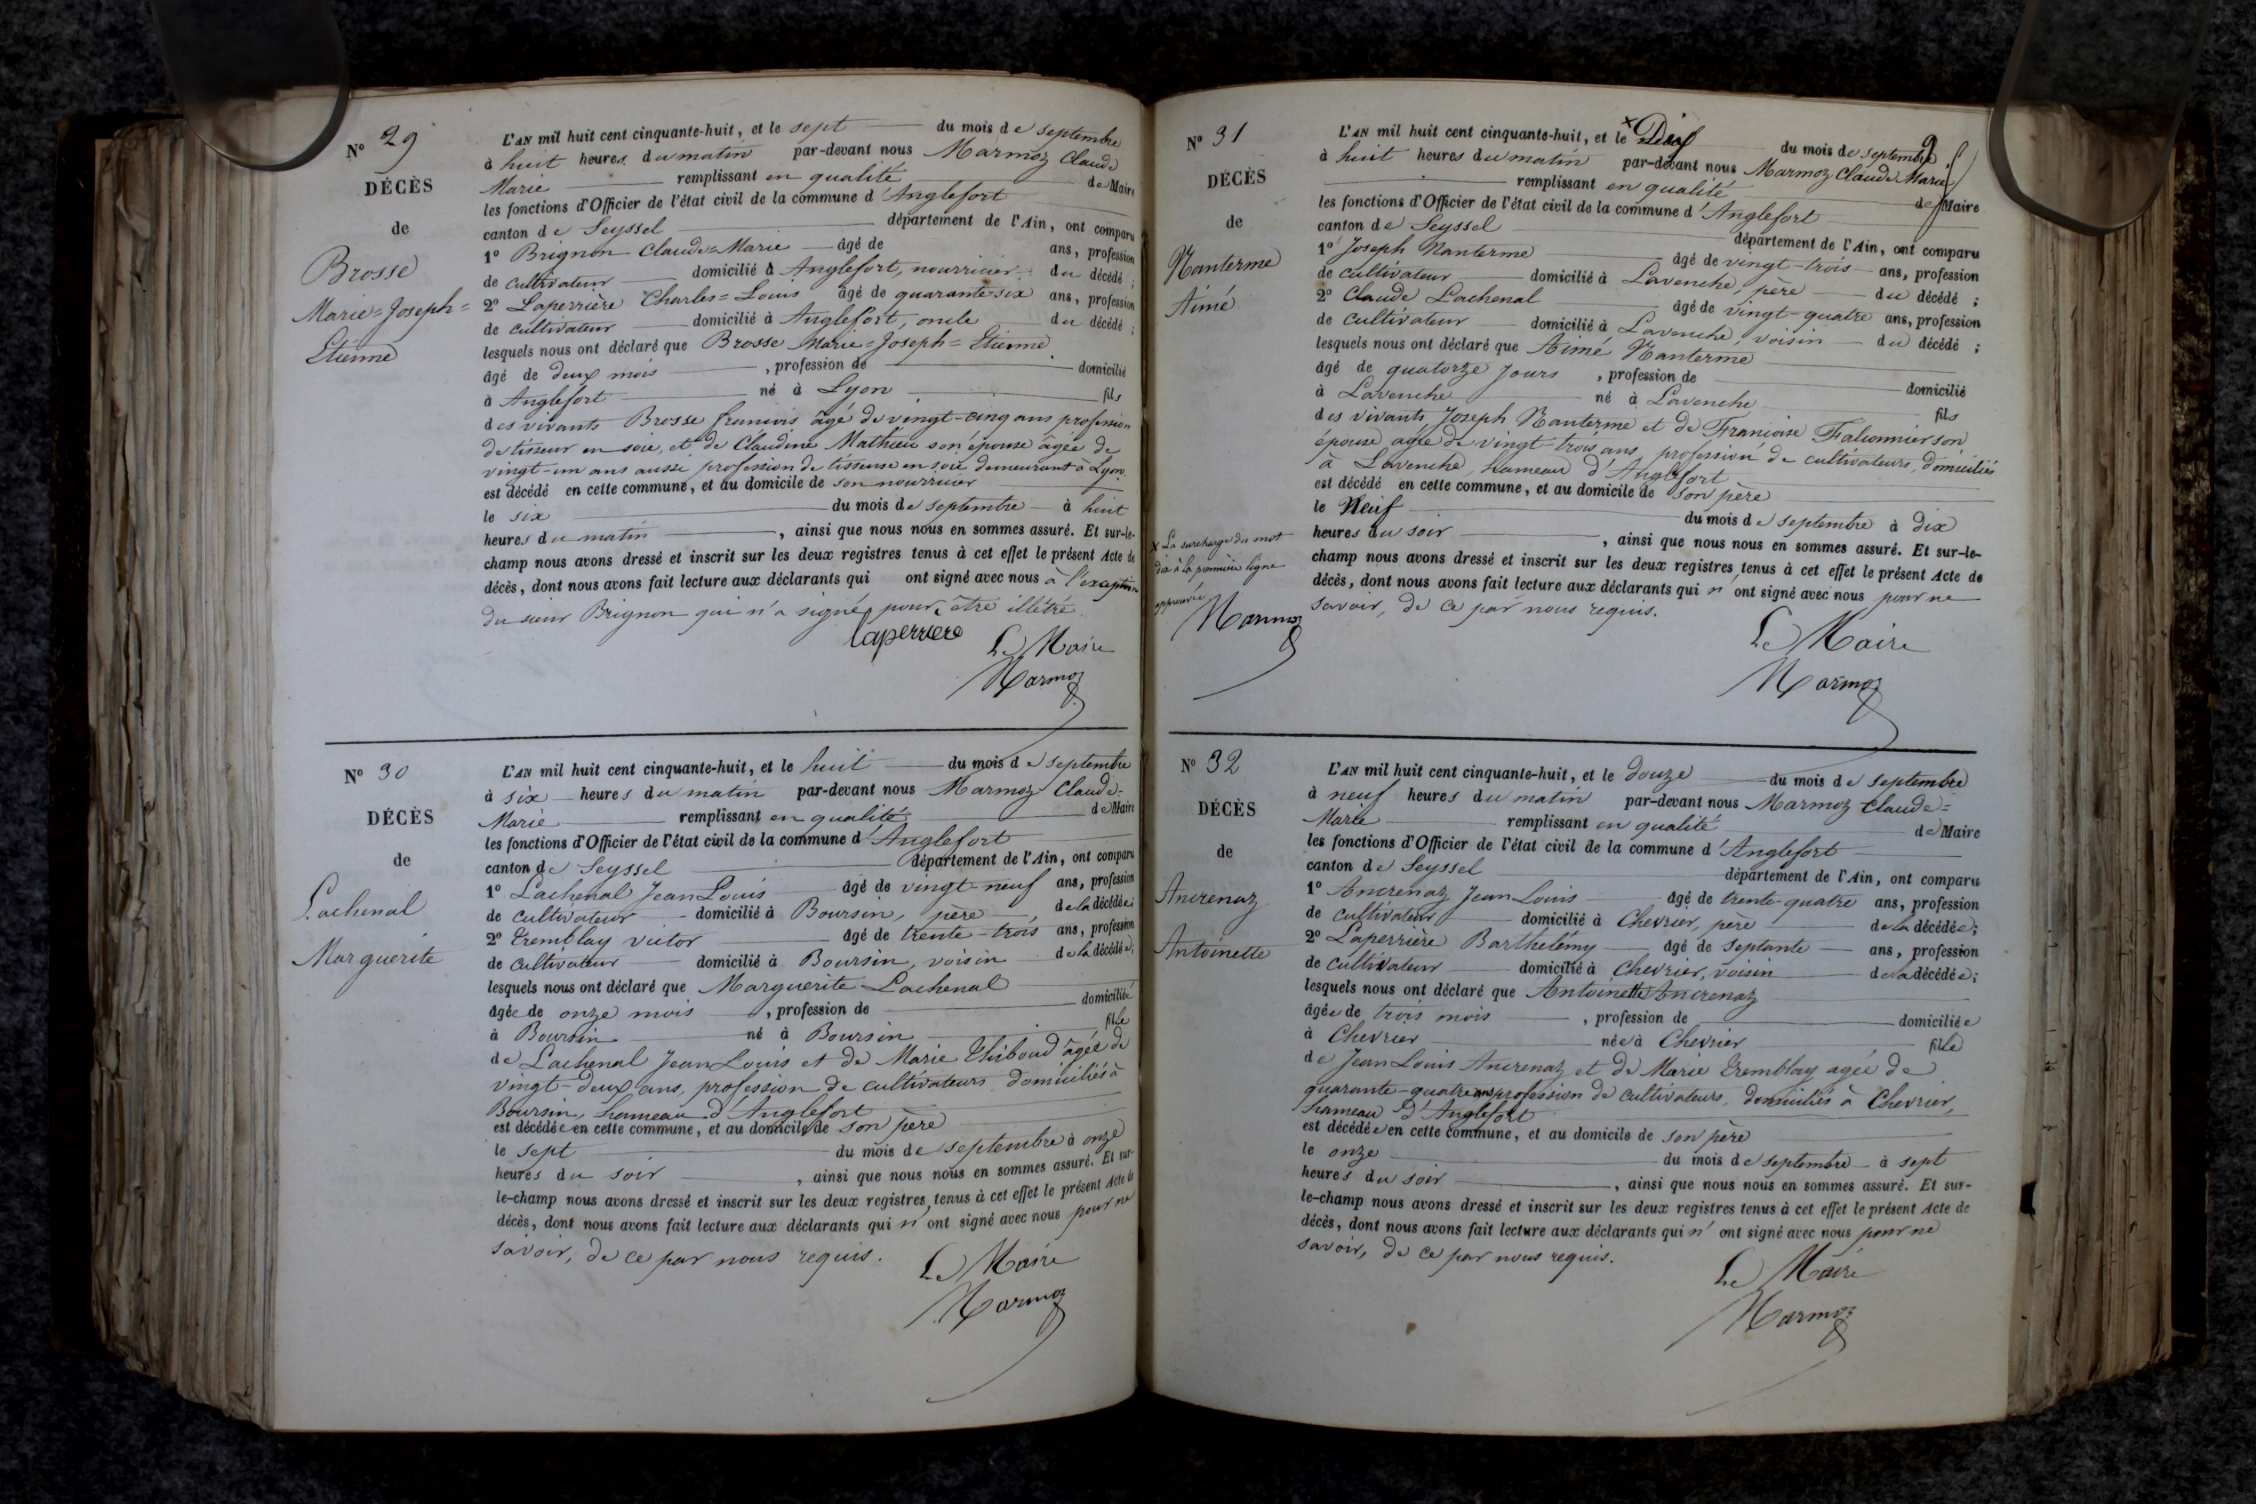 Nº 29
DÉCÈS
de
Brosse
Marie=Joseph=
Etienne
L'AN mil huit cent cinquante-huit, et le sept du mois de septembre
à huit heures du matin par-devant nous Marmoz Claude
Marie remplissant en qualité de Maire
les fonctions d'Officier de l'état civil de la commune d'Anglefort
canton de Seyssel département de l'Ain, ont comparu
1º Brignon Claude=Marie âgé de ans, profession
de cultivateur domicilié à Anglefort, nourricier du décédé ;
2º Laperrière Charles=Louis âgé de quarante-six ans, profession
de cultivateur domicilié à Anglefort, oncle du décédé ;
lesquels nous ont déclaré que Brosse Marie=Joseph=Etienne
âgé de deux mois , profession de domicilié
à Anglefort né à Lyon fils
des vivants Brosse francois âgé de vingt-cinq ans profession
de tisseur en soie, et de Claudine Mathieu son épouse âgée de
vingt-un ans aussi profession de tisseuse en soie demeurant à Lyon
est décédé en cette commune, et au domicile de son nourricier
le six du mois de septembre à huit
heures du matin , ainsi que nous nous en sommes assuré. Et sur-le-
champ nous avons dressé et inscrit sur les deux registres tenus à cet effet le présent Acte de
décès, dont nous avons fait lecture aux déclarants qui ont signé avec nous à l'exception
du sieur Brignon qui n'a signé pour être illétré.
Laperriere Le Maire
Marmoz
Nº 30
DÉCÈS
de
Lachenal
Marguerite
L'AN mil huit cent cinquante-huit, et le huit du mois de septembre
à six heures du matin par-devant nous Marmoz Claude-
Marie remplissant en qualité de Maire
les fonctions d'Officier de l'état civil de la commune d'Anglefort
canton de Seyssel département de l'Ain, ont comparu
1º Lachenal Jean Louis âgé de vingt-neuf ans, profession
de cultivateur domicilié à Boursin, père de la décédée ;
2º Tremblay victor âgé de trente-trois ans, profession
de cultivateur domicilié à Boursin, voisin de la décédée ;
lesquels nous ont déclaré que Marguerite Lachenal
âgée de onze mois , profession de domiciliée
à Boursin né à Boursin fille
de Lachenal Jean Louis et de Marie Thiboud âgée de
vingt-deux ans, profession de cultivateurs domiciliés à
Boursin, hameau d'Anglefort
est décédée en cette commune, et au domicile de son père
le sept du mois de septembre à onze
heures du soir , ainsi que nous nous en sommes assuré. Et sur-
le-champ nous avons dressé et inscrit sur les deux registres tenus à cet effet le présent Acte de
décès, dont nous avons fait lecture aux déclarants qui n'ont signé avec nous pour ne
savoir, de ce par nous requis.
Le Maire
Marmoz
Nº 31
DÉCÈS
de
Nanterme
Aimé
L'AN mil huit cent cinquante-huit, et le × Dix du mois de septembre
à huit heures du matin par-devant nous Marmoz Claude Marie
remplissant en qualité de Maire
les fonctions d'Officier de l'état civil de la commune d'Anglefort
canton de Seyssel département de l'Ain, ont comparu
1º Joseph Nanterme âgé de vingt-trois ans, profession
de cultivateur domicilié à Lavenche, père du décédé ;
2º Claude Lachenal âgé de vingt-quatre ans, profession
de cultivateur domicilié à Lavenche, voisin du décédé ;
lesquels nous ont déclaré que Aimé Nanterme
âgé de quatorze jours , profession de domicilié
à Lavenche né à Lavenche fils
des vivants Joseph Nanterme et de Francoise Falconnier son
épouse âgée de vingt-trois ans profession de cultivateurs, domiciliés
à Lavenche, hameau d'Anglefort
est décédé en cette commune, et au domicile de son père
le Neuf du mois de septembre à dix
heures du soir , ainsi que nous nous en sommes assuré. Et sur-le-
champ nous avons dressé et inscrit sur les deux registres tenus à cet effet le présent Acte de
décès, dont nous avons fait lecture aux déclarants qui n'ont signé avec nous pour ne
savoir, de ce par nous requis.
Le Maire
Marmoz
× La surcharge du mot
dix à la première ligne
approuvée
Marmoz
Nº 32
DÉCÈS
de
Ancrenaz
Antoinette
L'AN mil huit cent cinquante-huit, et le douze du mois de septembre
à neuf heures du matin par-devant nous Marmoz Claude=
Marie remplissant en qualité de Maire
les fonctions d'Officier de l'état civil de la commune d'Anglefort
canton de Seyssel département de l'Ain, ont comparu
1º Ancrenaz Jean Louis âgé de trente-quatre ans, profession
de cultivateur domicilié à Chevrier, père de la décédée ;
2º Laperrière Barthélémy âgé de septante ans, profession
de cultivateur domicilié à Chevrier, voisin de la décédée ;
lesquels nous ont déclaré que Antoinette Ancrenaz
âgée de trois mois , profession de domiciliée
à Chevrier née à Chevrier fille
de Jean Louis Ancrenaz et de Marie Tremblay agée de
quarante-quatre ans profession de cultivateurs, domiciliés à Chevrier,
hameau d'Anglefort
est décédée en cette commune, et au domicile de son père
le onze du mois de septembre à sept
heures du soir , ainsi que nous nous en sommes assuré. Et sur-
le-champ nous avons dressé et inscrit sur les deux registres tenus à cet effet le présent Acte de
décès, dont nous avons fait lecture aux déclarants qui n'ont signé avec nous pour ne
savoir, de ce par nous requis.
Le Maire
Marmoz